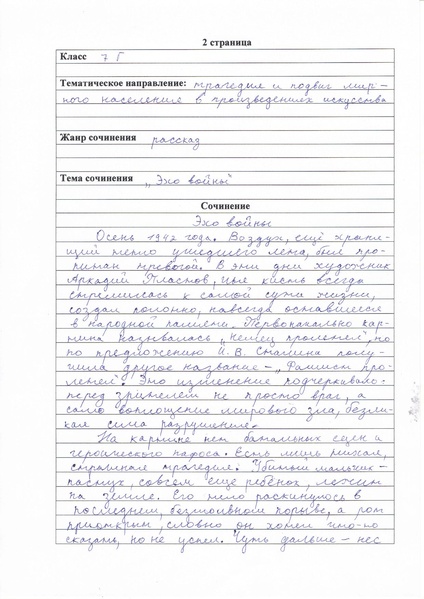 2 страница
Класс 7 Г
Тематическое направление: трагедия и подвиг мир-
ного населения в произведениях искусства
Жанр сочинения рассказ
Тема сочинения „Эхо войны"
Сочинение
Эхо войны
Осень 1942 года. Воздух, ещё храня-
щий тепло ушедшего лета, был про-
питан тревогой. В эти дни художник
Аркадий Пластов, чья кисть всегда
стремилась к самой сути жизни,
создал полотно, навсегда оставшееся
в народной памяти. Первоначально кар-
тина называлась „Немец пролетел", но
по предложению И. В. Сталина полу-
чила другое название – „Фашист про-
летел". Это изменение подчеркивало:
перед зрителем не просто враг, а
само воплощение мирового зла, безли-
кая сила разрушения.
На картине нет батальных сцен и
героического пафоса. Есть лишь тихая,
страшная трагедия. Убитый мальчик –
пастух, совсем ещё ребёнок, лежит
на земле. Его тело раскинулось в
последнем, безмолвном порыве, а рот
приоткрыт, словно он хотел что-то
сказать, но не успел. Чуть дальше – пёс